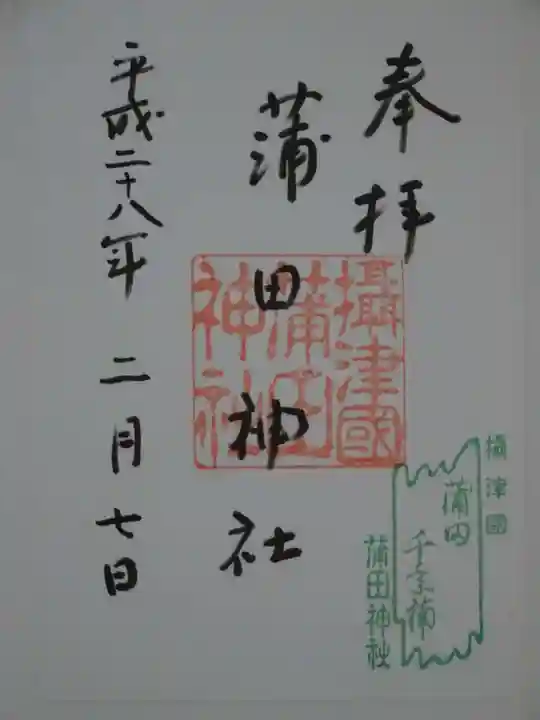 奉拝
蒲田神社
平成二十八年 二月七日
攝津國
蒲田
神社
摂津國
蒲田
蒲田神社